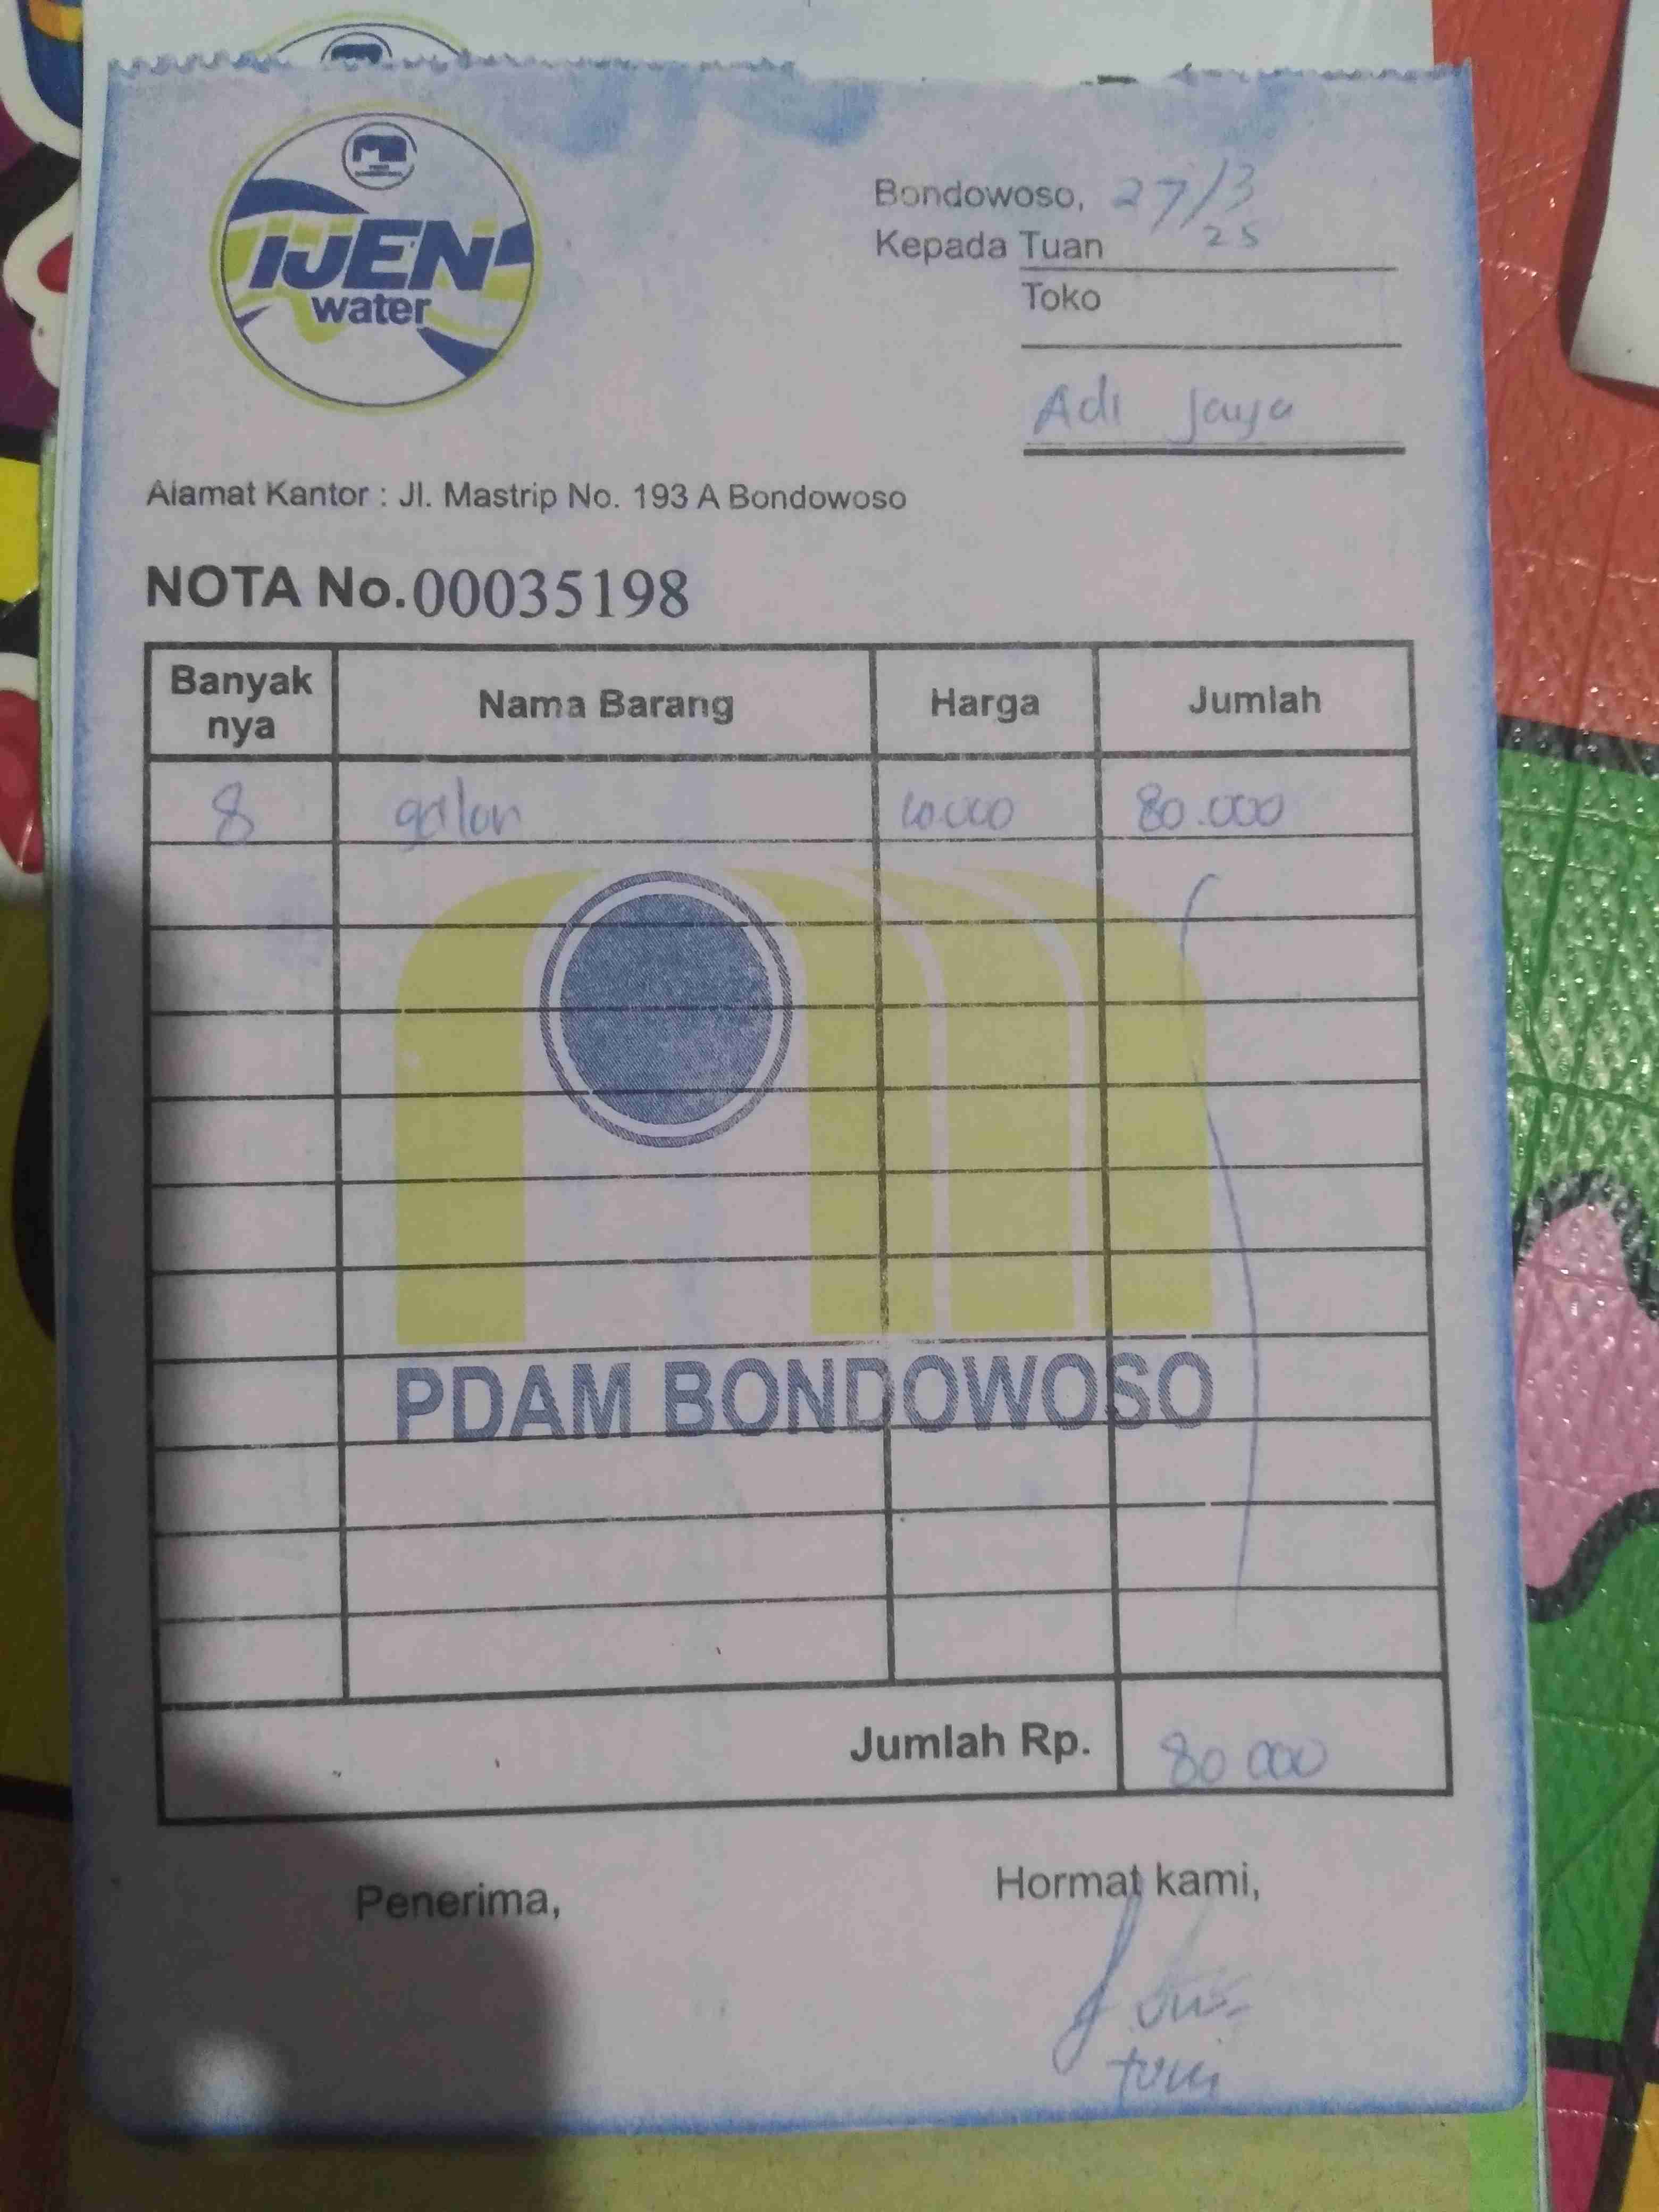 IJEN
water
Bondowoso, 27/3
25
Kepada Tuan
Toko
Adi Jaya
Alamat Kantor : Jl. Mastrip No. 193 A Bondowoso
NOTA No. 00035198
Banyak nya Nama Barang Harga Jumlah
8 galon 10.000 80.000
PDAM BONDOWOSO
Jumlah Rp. 80 000
Penerima, Hormat kami,